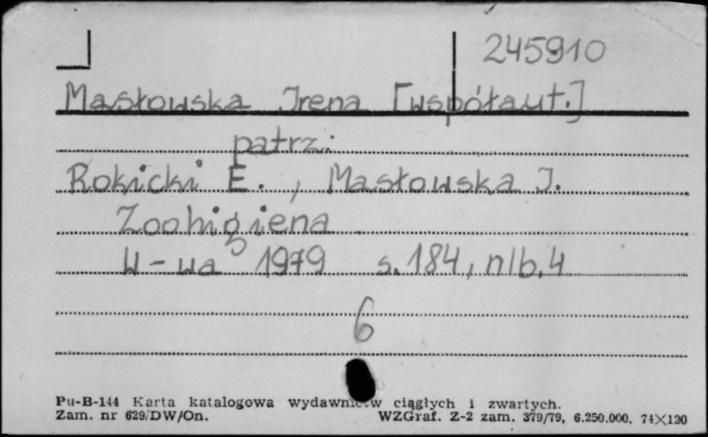 245910
Masłowska Irena [współaut.]
patrz:
Rokicki E., Masłowska J.
Zoohigiena
W-wa 1979 s. 184, nlb. 4
6
Pu-B-144 Karta katalogowa wydawnictw ciągłych i zwartych.
Zam. nr 629/DW/On. WZGraf. Z-2 zam. 379/79, 6.250.000, 74×120